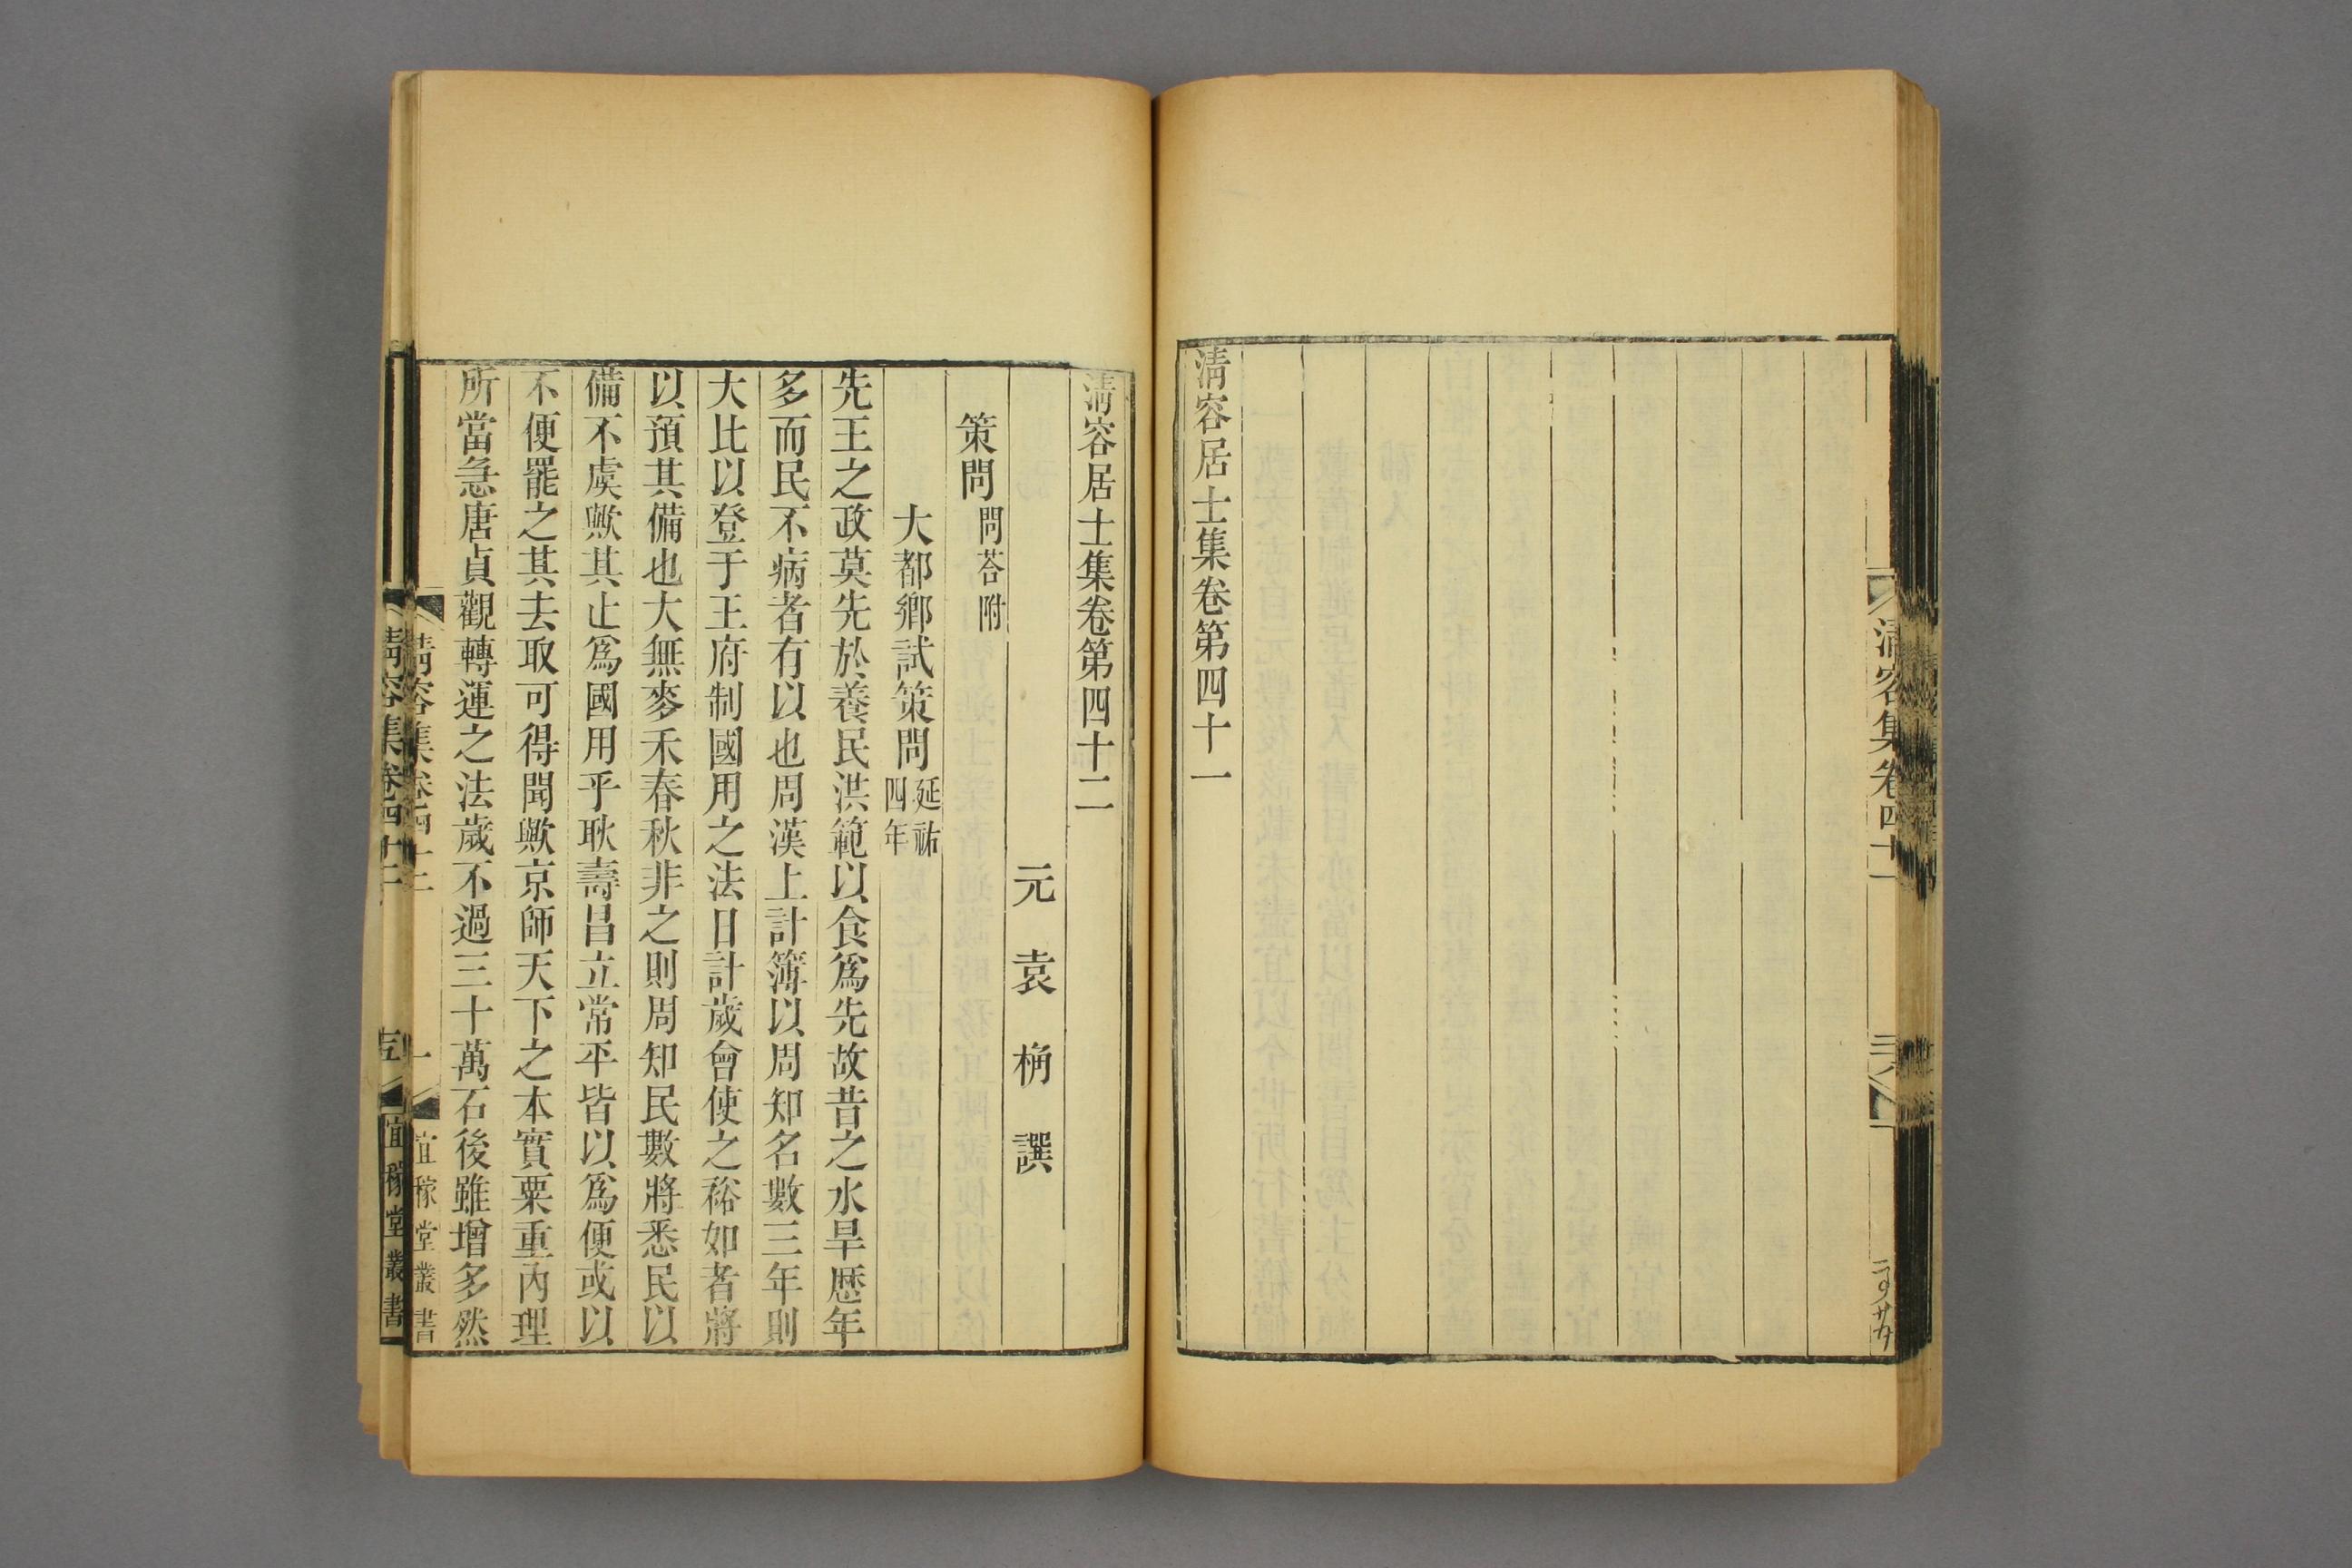 清容居士集卷第四十一
清容集卷四十一
清容居士集卷第四十二
元 袁 桷 譔
策問 問荅附
大都鄉試策問 延祐四年
先王之政莫先於養民洪範以食爲先故昔之水旱歷年
多而民不病者有以也周漢上計簿以周知名數三年則
大比以登于王府制國用之法日計歲會使之裕如者將
以預其備也大無麥禾春秋非之則周知民數將悉民以
備不虞歟其止爲國用乎耿壽昌立常平皆以爲便或以
不便罷之其去取可得聞歟京師天下之本實粟重內理
所當急唐貞觀轉運之法歲不過三十萬石後雖增多然
清容集卷四十二 一 宜稼堂叢書
宜稼堂叢書